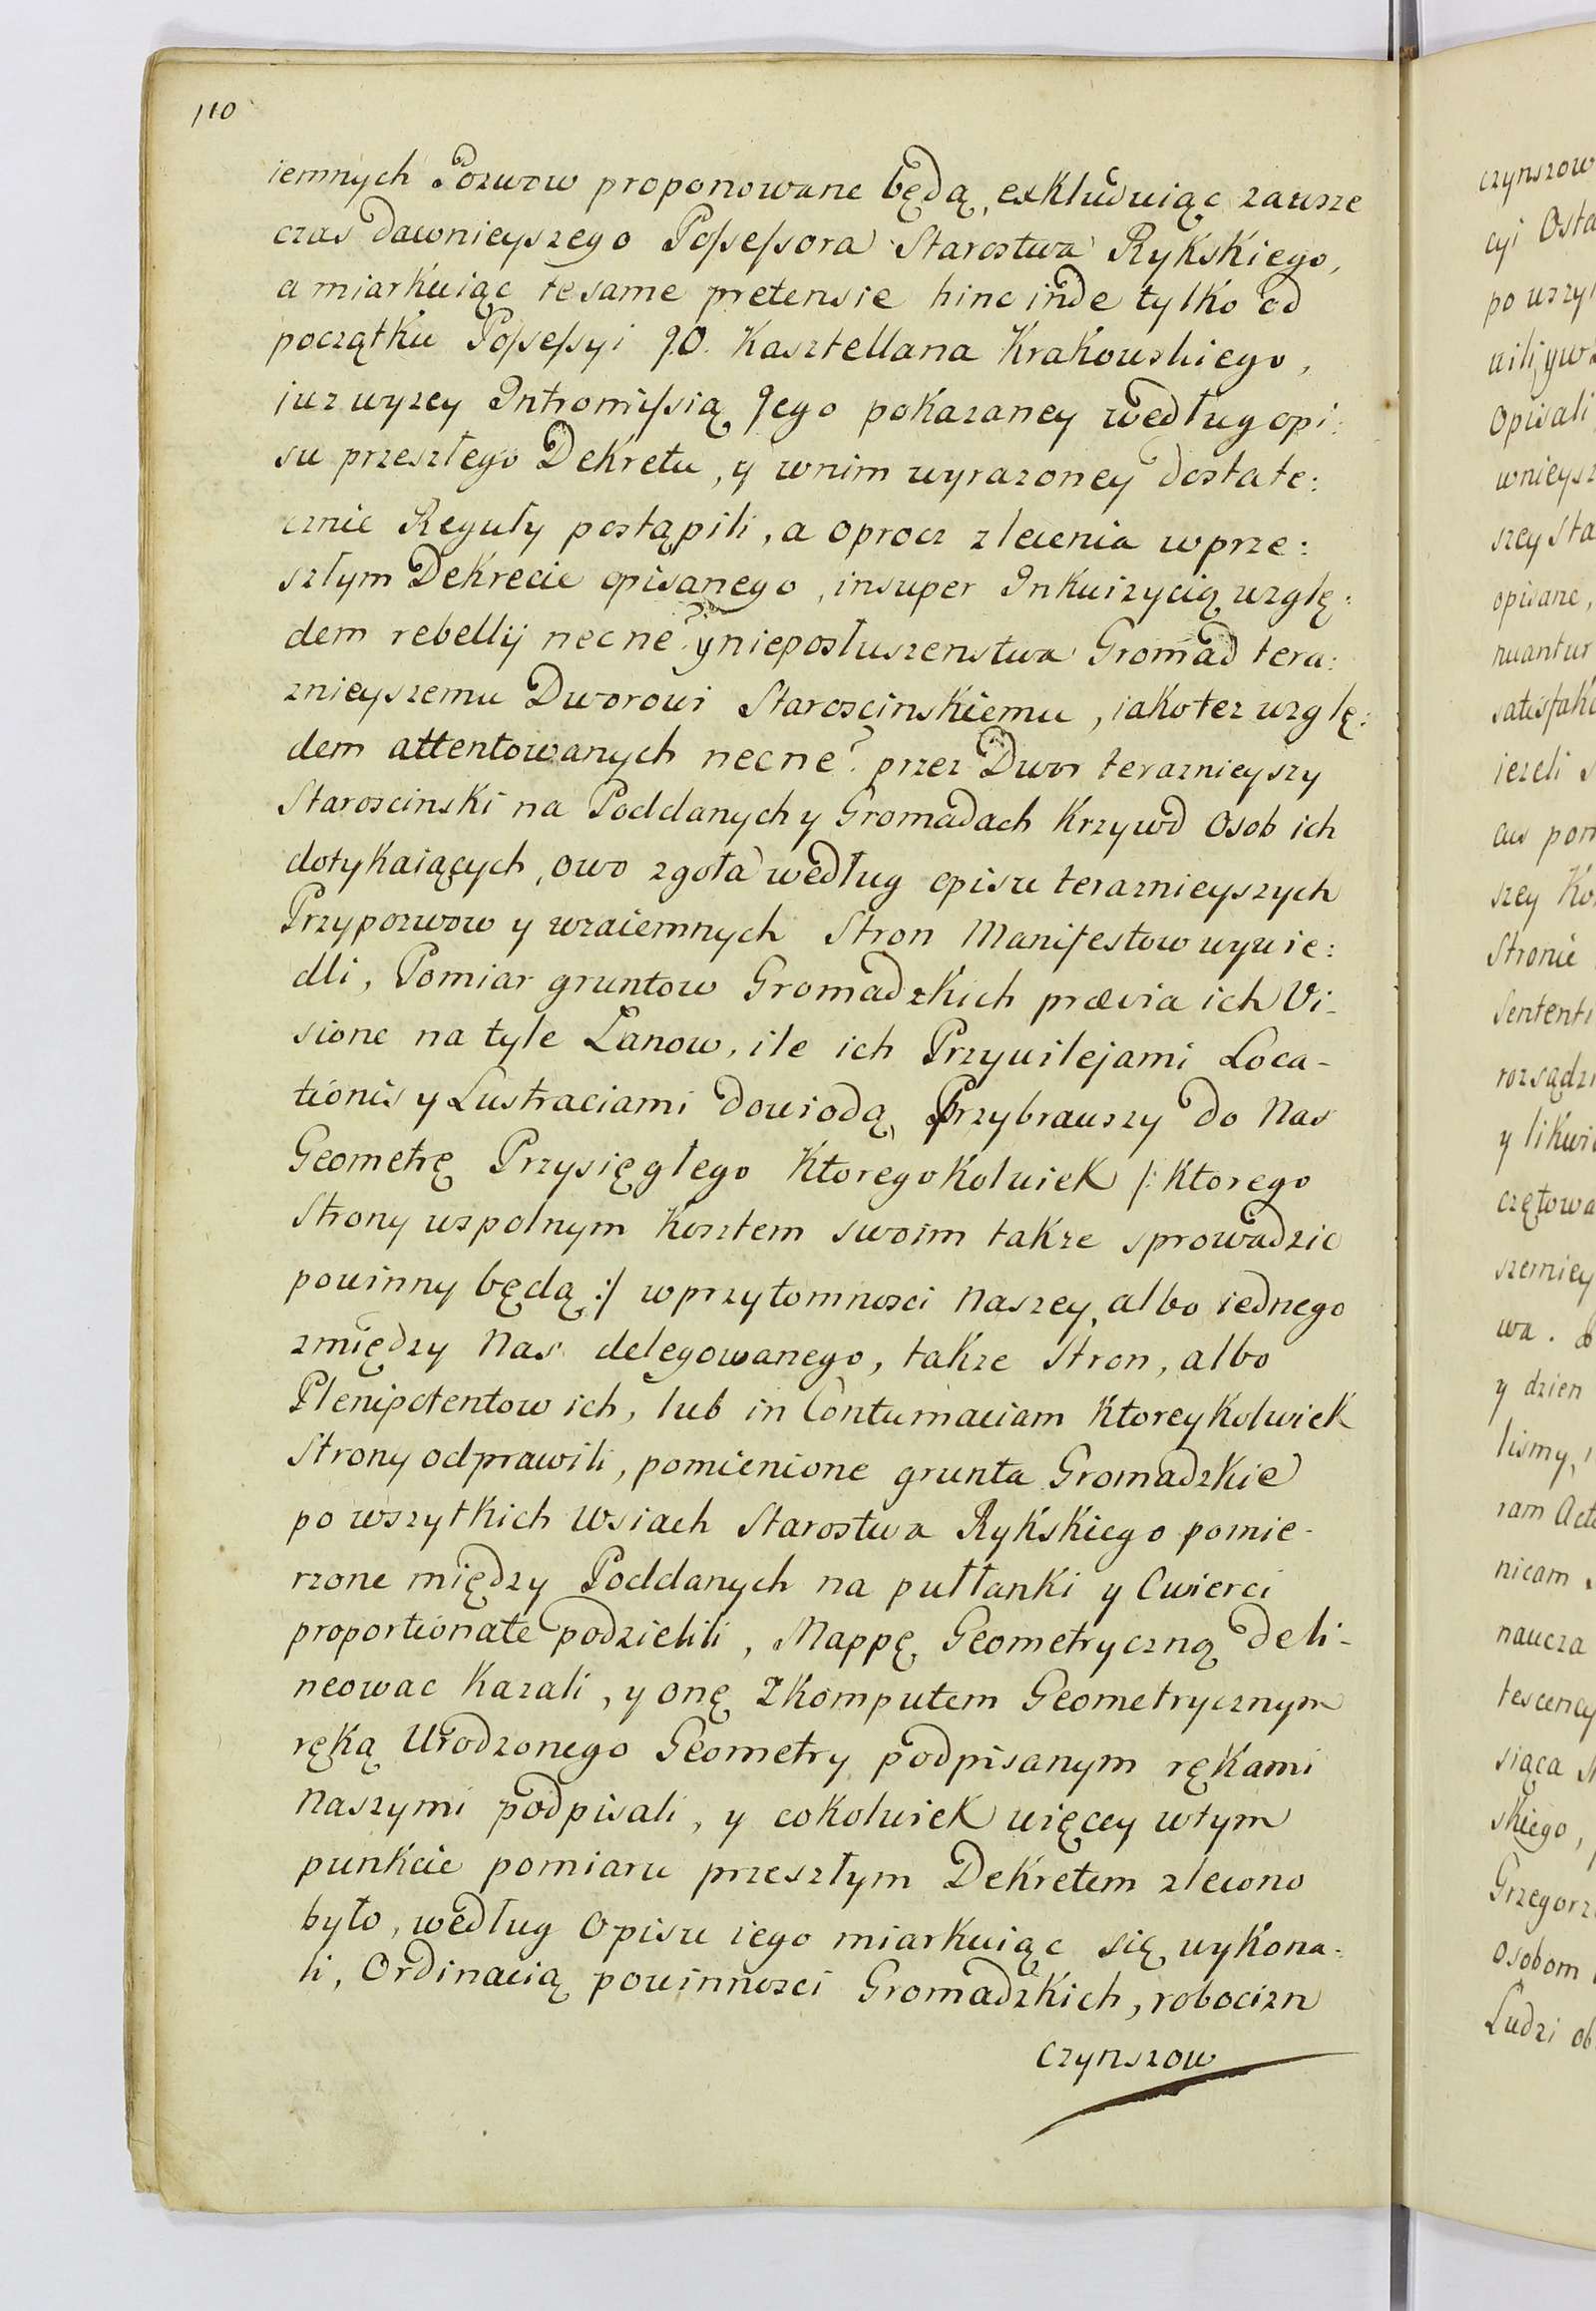 110
iemnych Pozwow proponowane będą, exkluduiąc zawsze
czas dawnieyszego Possessora Starostwa Rykskiego,
a miarkuiąc tesame pretensie hinc inde tylko od
początku Possessyi J.O. Kasztellana Krakowskiego,
juz wyzey Intromissią Jego pokazaney według opi:
su przeszłego Dekretu, y wnim wyrazoney dostate:
cznie Reguły postąpili, a oprocz zlecenia wprze:
szłym Dekrecie opisanego, insuper Inkwizycią wzglę:
dem rebellij necne? y nieposłuszenstwa Gromad tera:
znieyszemu Dworowi Staroscinskiemu, iakotez wzglę:
dem attentowanych necne? przez Dwor teraznieyszy
Staroscinski na Poddanych y Gromadach Krzywd Osob ich
dotykaiących, owo zgoła według opisu teraznieyszych
Przypozwow y wzaiemnych Stron Manifestow wywie:
dli, Pomiar gruntow Gromadzkich prævia ich Vi-
sione na tyle Łanow, ile ich Przywilejami Loca-
tionis y Lustraciami dowiodą, Przybrawszy do Nas
Geometrę Przysięgłego Ktoregokolwiek /: Ktorego
Strony wspolnym kosztem swoim takze sprowadzic
powinny będą :/ wprzytomnosci Naszey, albo iednego
zmiędzy Nas delegowanego, takze Stron, albo
Plenipotentow ich, lub in Contumaciam Ktoreykolwiek
Strony odprawili, pomienione grunta Gromadzkie
po wszytkich Wsiach Starostwa Rykskiego pomie-
rzone między Poddanych na pułłanki y Cwierci
proportionate podzielili, Mappę Geometryczną deli-
neowac Kazali, y onę Zkomputem Geometrycznym
ręką Urodzonego Geometry podpisanym rękami
Naszymi podpisali, y cokolwiek więcey wtym
punkcie pomiaru przeszłym Dekretem zlecono
było, według Opisu iego miarkuiąc się wykona:
li, Ordinacią powinnosci Gromadzkich, robocizn
Czynszow
czynszow
cyi Osta
po wszy
Opisali
wnieysz
szey Sta
opisane,
nuantur
satisfak
iezeli
szey Ko
Stronie
Sententi
rozsądzi
y likwi
szemiey
wa.
y dzien
lismy,
ram Act
nicam
naucza
siąca
skiego,
Grzegorz
osobom
Ludzi ob